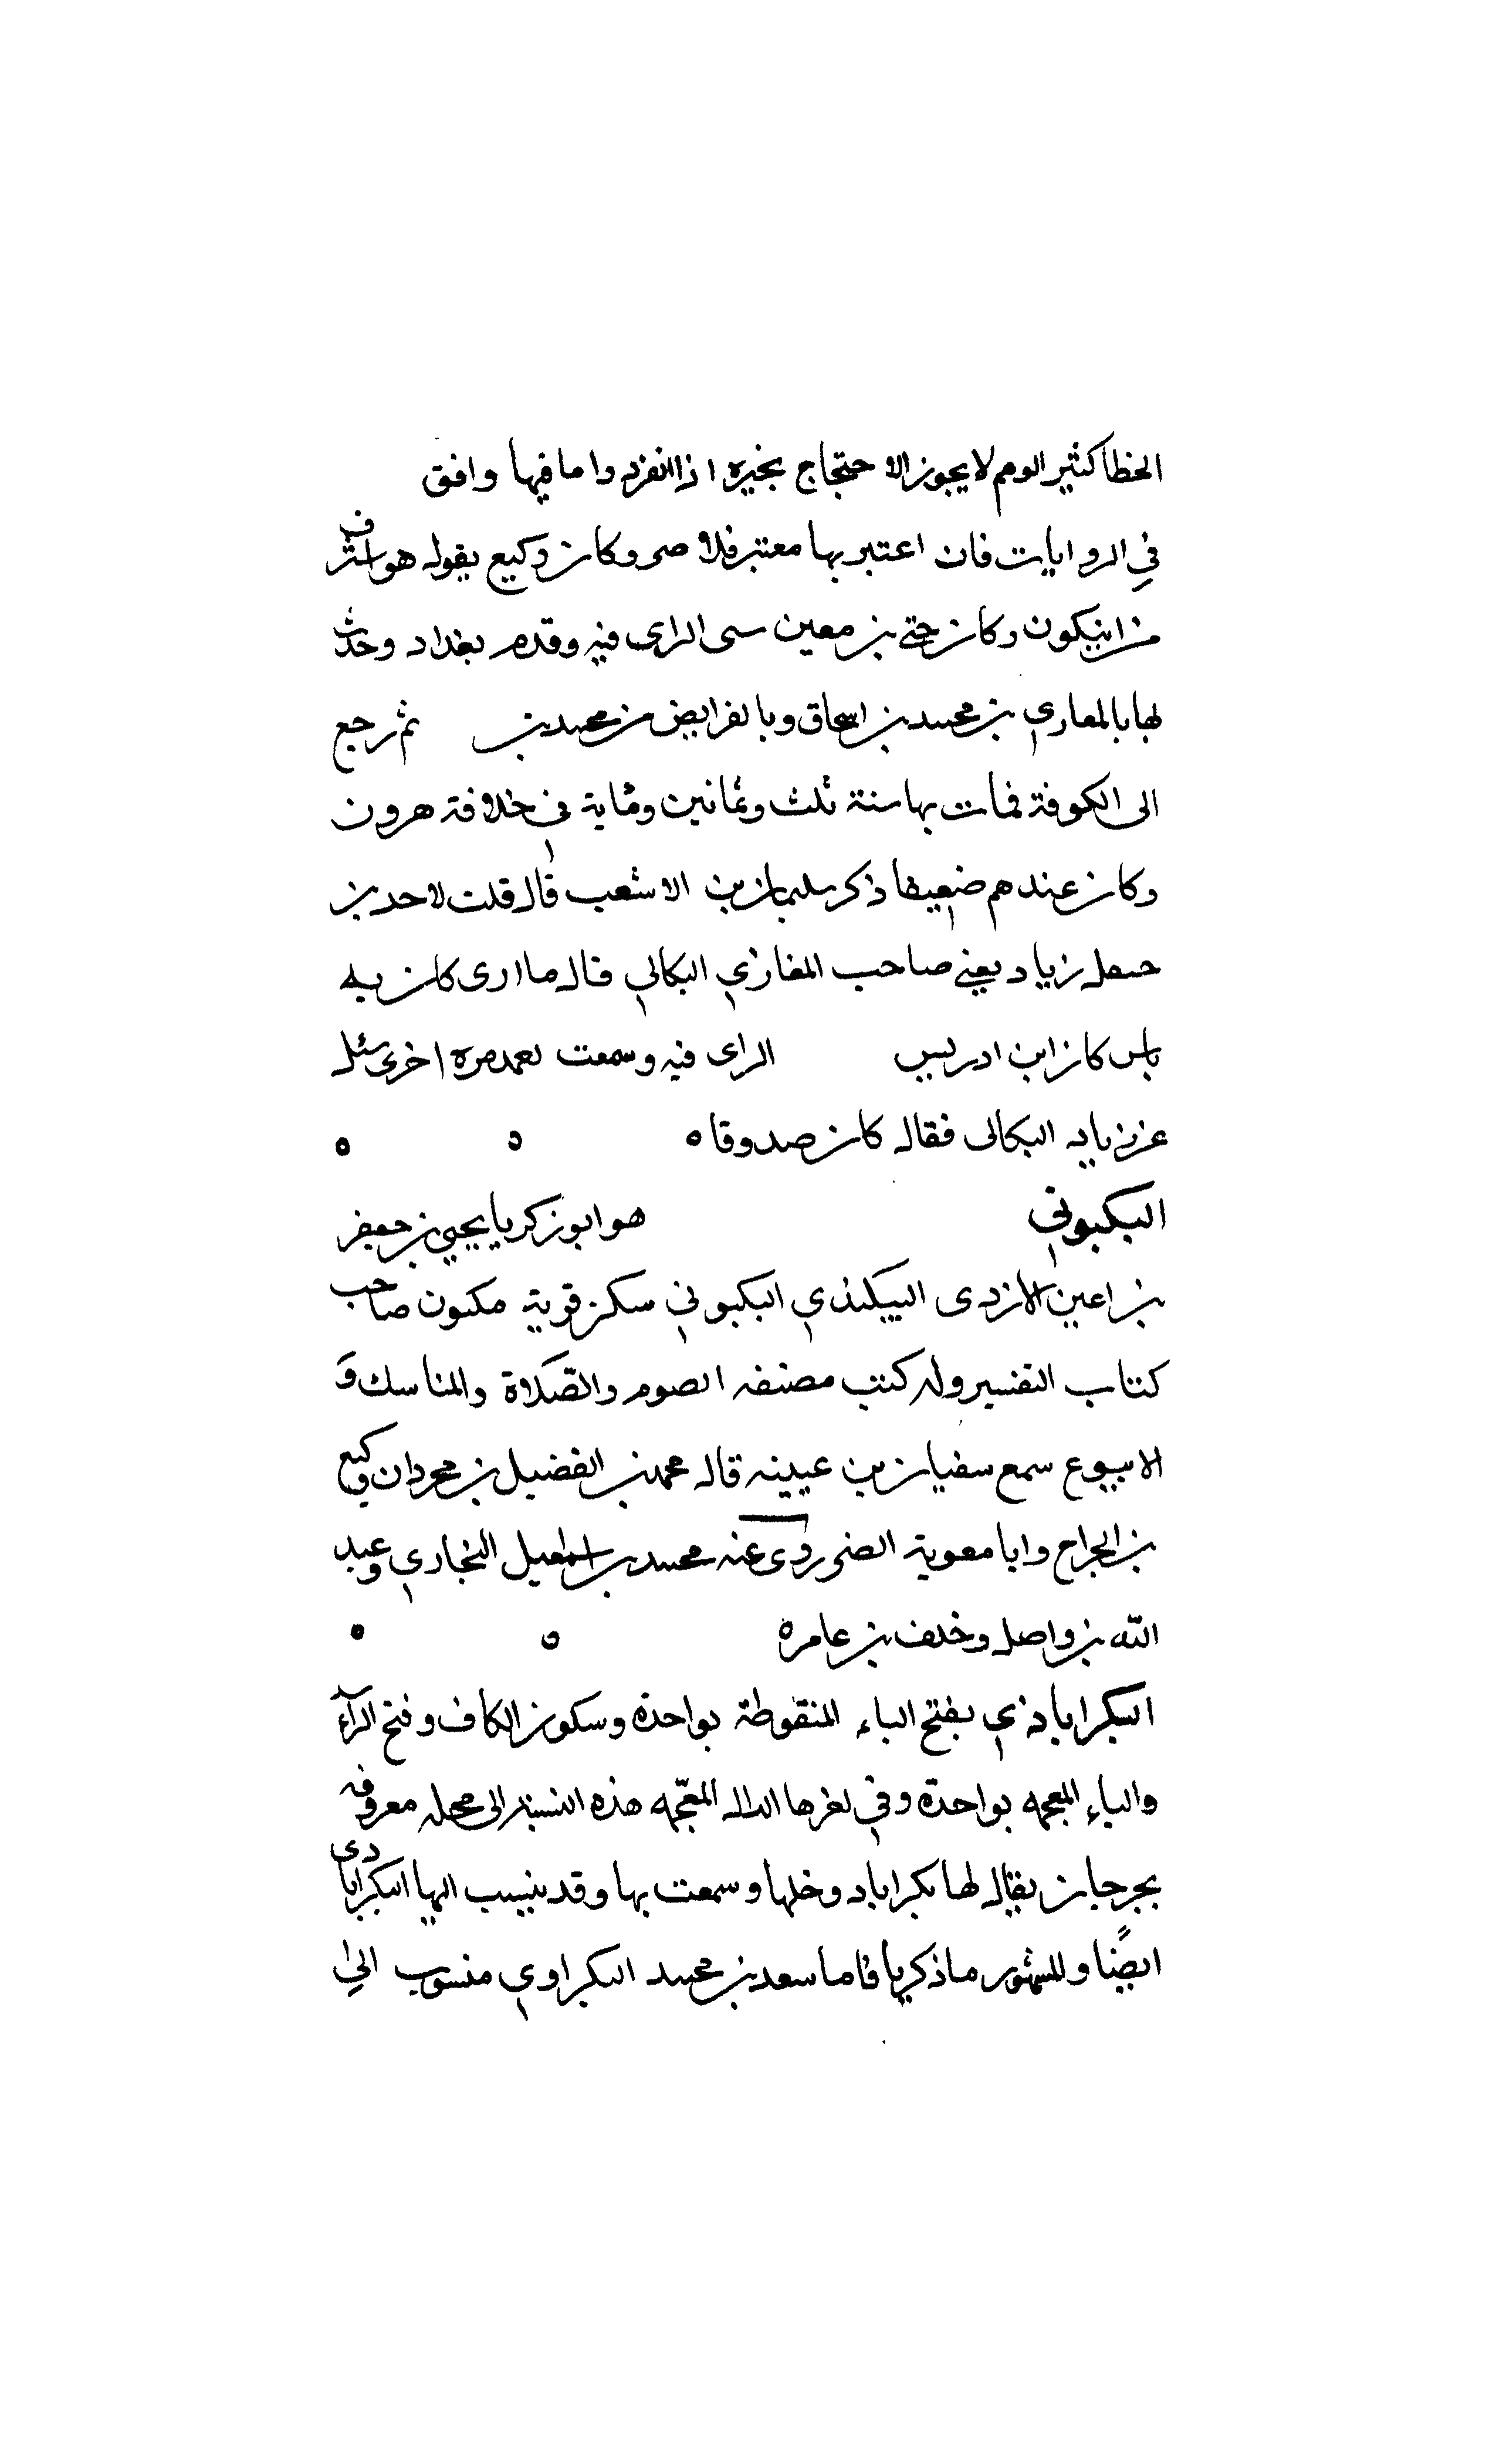 الخطا كثير الوهم لا يجوز الاحتجاج بخبره اذا انفرد واما فيما وافق
في الروايات فان اعتبر بها معتبر فلا صر وكان وكيع يقول هو اشرف
من ان يكون وكان يحيى بن معين سى الراى فيه وقدم بغداد وحدث
بها بالمغازي بن محمد بن اسحاق وبالفرايض بن محمد بن ثم رجع
الى الكوفة فمات بها سنة ثلث وثمانين ومايه في خلافة هرون
وكان عندهم ضعيفا ذكر سليمان بن الاشعب قال قلت لاحد بن
زياد يعني صاحب المغازي البكالي قال ما ارى كان به
باس كان ابن ادريس الراى فيه وسمعت مره اخرى سئل
عن زياد البكالى فقال كان صدوقا ه ه ه
البكبوني هو ابو زكريا يحيى بن جعفر
بن اعين الازدى البيكندي البكبوني سكن قرية مكنون صاحب
كتاب التفسير وله كتب مصنفه الصوم والصّلاة والمناسك و
الابيوع سمع سفيان بن عيينه قال محمد بن الفضيل بن وكيع
بن الجراح وابا معوية روى عنه محمد بن اسمعيل البخاري وعبد
الله بن واصل وخلف بن عامر ه ه ه
البكراباذي بفتح الباء المنقوطة بواحدة وسكون الكاف وفتح الراء
والباء المعجمه بواحدة وفي اخرها الدال المعجّمه هذه النسبة الى محله معروفه
بجرجان يقال لها بكراباد دخلها وسمعت بها وقد ينسب اليها البكرابادى
ايضًا والمشهور ما ذكرنا فاما سعد بن محمد البكراوي منسوب الى